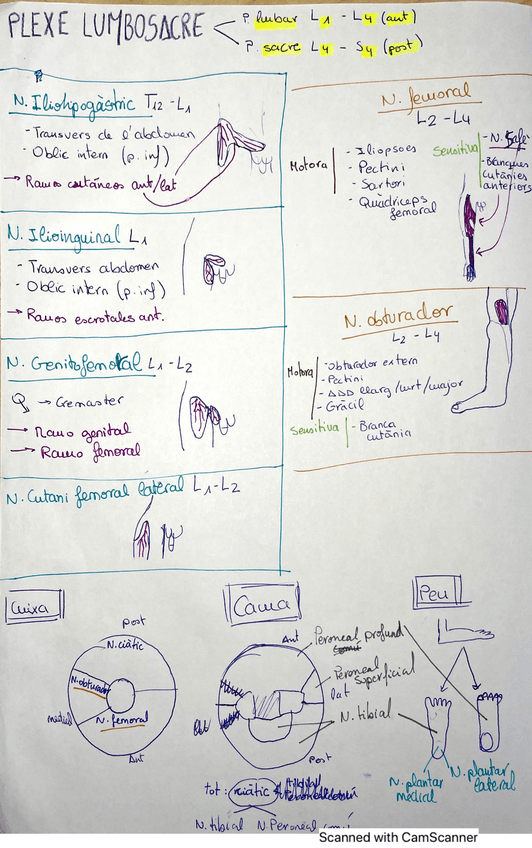 PLEXE LUMBOSACRE
P. lumbar L1 - L4 (ant)
P. sacre L4 - S4 (post)
N. Iliohipogàstric T12 - L1
- Transvers de l'abdomen
- Oblic intern (p. inf)
→ Ramos cutáneos ant/lat
N. Ilioinguinal L1
- Transvers abdomen
- Oblic intern (p. inf)
→ Ramos escrotales ant.
N. Genitofemoral L1 - L2
→ Cremaster
→ Ramo genital
→ Ramo femoral
N. Cutani femoral lateral L1 - L2
N. femoral
L2 - L4
Motora
- Iliopsoes
- Pectini
- Sartori
- Quàdriceps
femoral
Sensitiva
- Branques
cutànies
anteriors
N. obturador
L2 - L4
Motora
- Obturador extern
- Pectini
- ADD llarg/curt/major
- Gràcil
Sensitiva
- Branca
cutània
Cuixa
Post
N. ciàtic
N. obturador
medial
N. femoral
Ant
Cama
Ant
Peroneal profund
Peroneal
superficial
lat
N. tibial
Post
tot: ciàtic
N. tibial N. Peroneal comú
Peu
N. plantar
medical
N. plantar
lateral
Scanned with CamScanner